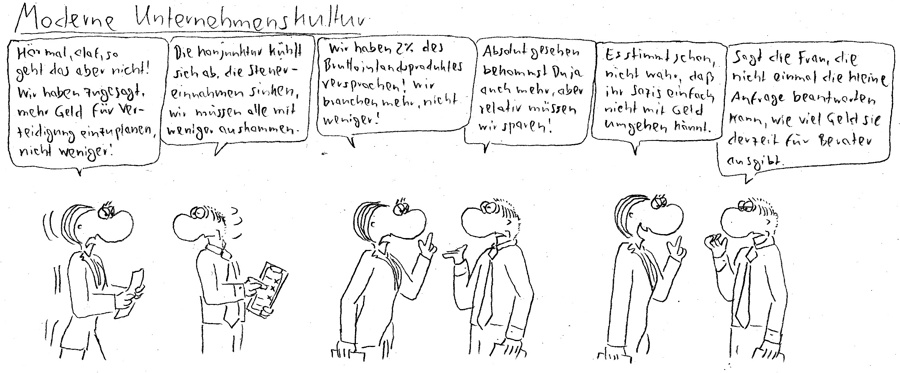 Moderne Unternehmenskultur
Hör mal, Olaf, so
geht das aber nicht!
Wir haben zugesagt,
mehr Geld für Ver-
teidigung einzuplanen,
nicht weniger!
Die Konjunktur kühlt
sich ab, die Steuer-
einnahmen sinken,
wir müssen alle mit
weniger auskommen.
Wir haben 2% des
Bruttoinlandsproduktes
versprochen! Wir
brauchen mehr, nicht
weniger!
Absolut gesehen
bekommst Du ja
auch mehr, aber
relativ müssen
wir sparen!
Es stimmt schon,
nicht wahr, daß
ihr Sozis einfach
nicht mit Geld
umgehen könnt.
Sagt die Frau, die
nicht einmal die kleine
Anfrage beantworten
kann, wie viel Geld sie
derzeit für Berater
ausgibt.